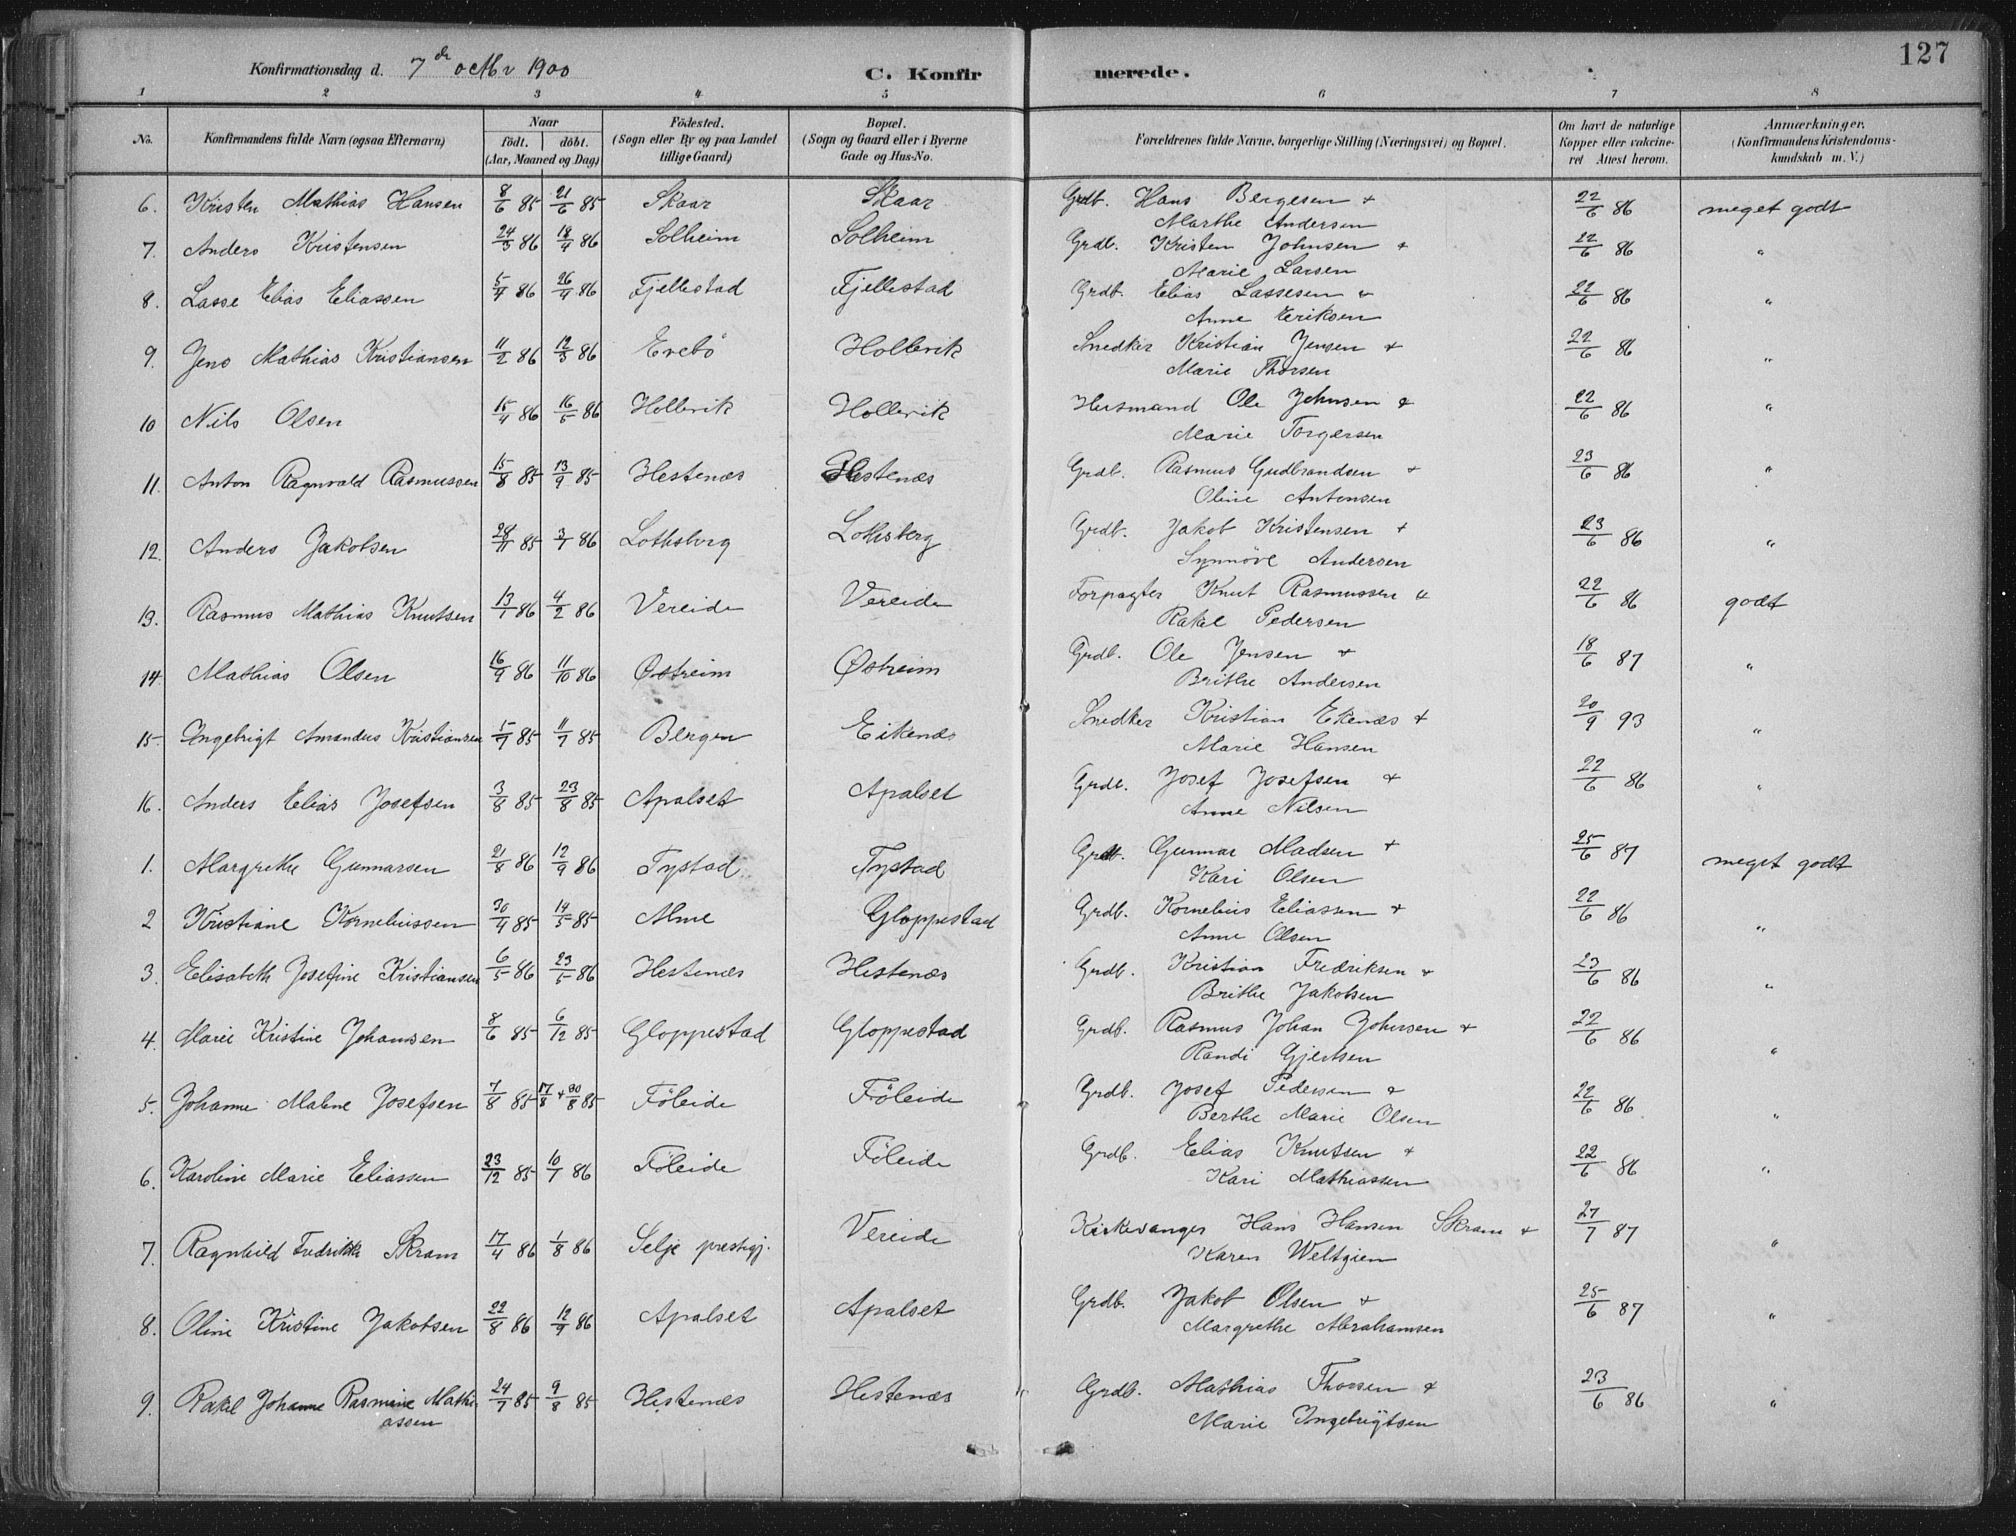 127
Konfirmationsdag d. 7de octbr 1900 C. Konfirmerede.
1 2 3 4 5 6 7 8
No. Konfirmandens fulde Navn (ogsaa Efternavn) Naar født. døbt. (Aar, Maaned og Dag) Fødested. (Sogn eller By og paa Landet tillige Gaard) Bopæl. (Sogn og Gaard eller i Byerne Gade og Hus-No. Forældrenes fulde Navne, borgerlige Stilling (Næringsvei) og Bopæl. Om havt de naturlige Kopper eller vaccineret Attest herom. Anmærkninger. (Konfirmandens Kristendomskundskab m. V.)
6. Kristen Mathias Hansen 8/6 85 21/6 85 Skaar Skaar Grdb. Hans Bergesen + 22/6 86 meget godt
Marthe Andersen
7. Anders Kristensen 24/3 86 18/4 86 Solheim Solheim Grdb. Kristen Johnsen + 22/6 86 "
Marie Larsen
8. Lasse Elias Eliassen 5/4 86 26/4 86 Fjellestad Fjellestad Grdb. Elias Lassesen + 22/6 86 "
Anne Eriksen
9. Jens Mathias Kristiansen 11/2 86 12/3 86 Evebö Hollevik Snedker Kristian Jensen + 22/6 86 "
Marie Thorsen
10 Nils Olsen 15/4 86 16/5 86 Hollevik Hollevik Husmand Ole Johnsen + 22/6 86 "
Marie Torgersen
11. Anton Ragnvald Rasmussen 15/8 85 13/9 85 Hestenæs Hestenæs Grdb. Rasmus Gudbrandsen + 23/6 86 "
Oline Antonsen
12. Anders Jakobsen 28/11 85 3/1 86 Lothsberg Lothsberg Grdb. Jakob Kristensen + 23/6 86 "
Synnöve Andersen
13. Rasmus Mathias Knutsen 13/1 86 4/2 86 Vereide Vereide Forpagter Knut Rasmussen + 22/6 86 godt
Rakel Pedersen
14. Mathias Olsen 16/9 86 11/10 86 Østreim Østreim Grdb. Ole Jensen + 18/6 87 "
Brithe Andersen
15. Ingebrigt Amandus Kristiansen 5/7 85 11/7 85 Bergen Eikenæs Snedker Kristian Ekenæs + 20/9 93 "
Marie Hansen
16. Anders Elias Josefsen 3/8 85 23/8 85 Apalset Apalset Grdb. Josef Josefsen + 22/6 86 "
Anne Nilsen
1. Margrethe Gunnarsen 21/8 86 12/9 86 Tystad Tystad Grdb. Gunnar Madsen + 25/6 87 meget godt
Kari Olsen
2 Kristiane Korneliussen 30/4 85 14/5 85 Alme Gloppestad Grdb. Kornelius Eliassen + 22/6 86 "
Anne Olsen
3. Elisabeth Josefine Kristiansen 6/5 86 23/5 86 Hestenæs Hestenæs Grdb. Kristian Fredriksen + 23/6 86 "
Brithe Jakobsen
4. Marie Kristine Johansen 8/6 85 6/12 85 Gloppestad Gloppestad Grdb. Rasmus Johan Johnsen + 22/6 86 "
Randi Gjertsen
5. Johanne Malene Josefsen 7/8 85 17/8 + 30/8 85 Föleide Föleide Grdb. Josef Pedersen + 22/6 86 "
Berthe Marie Olsen
6. Karoline Marie Eliassen 23/12 85 10/1 86 Föleide Föleide Grdb. Elias Knutsen + 22/6 86 "
Kari Mathiassen
7. Ragnhild Fredrikke Skram 17/4 86 1/8 86 Selje prestgj. Vereide Kirkesanger Hans Hansen Skram + 27/7 87 "
Karen Weltzien
8. Oline Kristine Jakobsen 22/8 86 12/9 86 Apalset Apalset Grdb. Jakob Olsen + 25/6 87 "
Margrethe Abrahamsen
9. Rakel Johanne Rasmine Mathiassen 24/7 85 9/8 85 Hestenæs Hestenæs Grdb. Mathias Thorsen + 23/6 86 "
Marie Ingebrigtsen